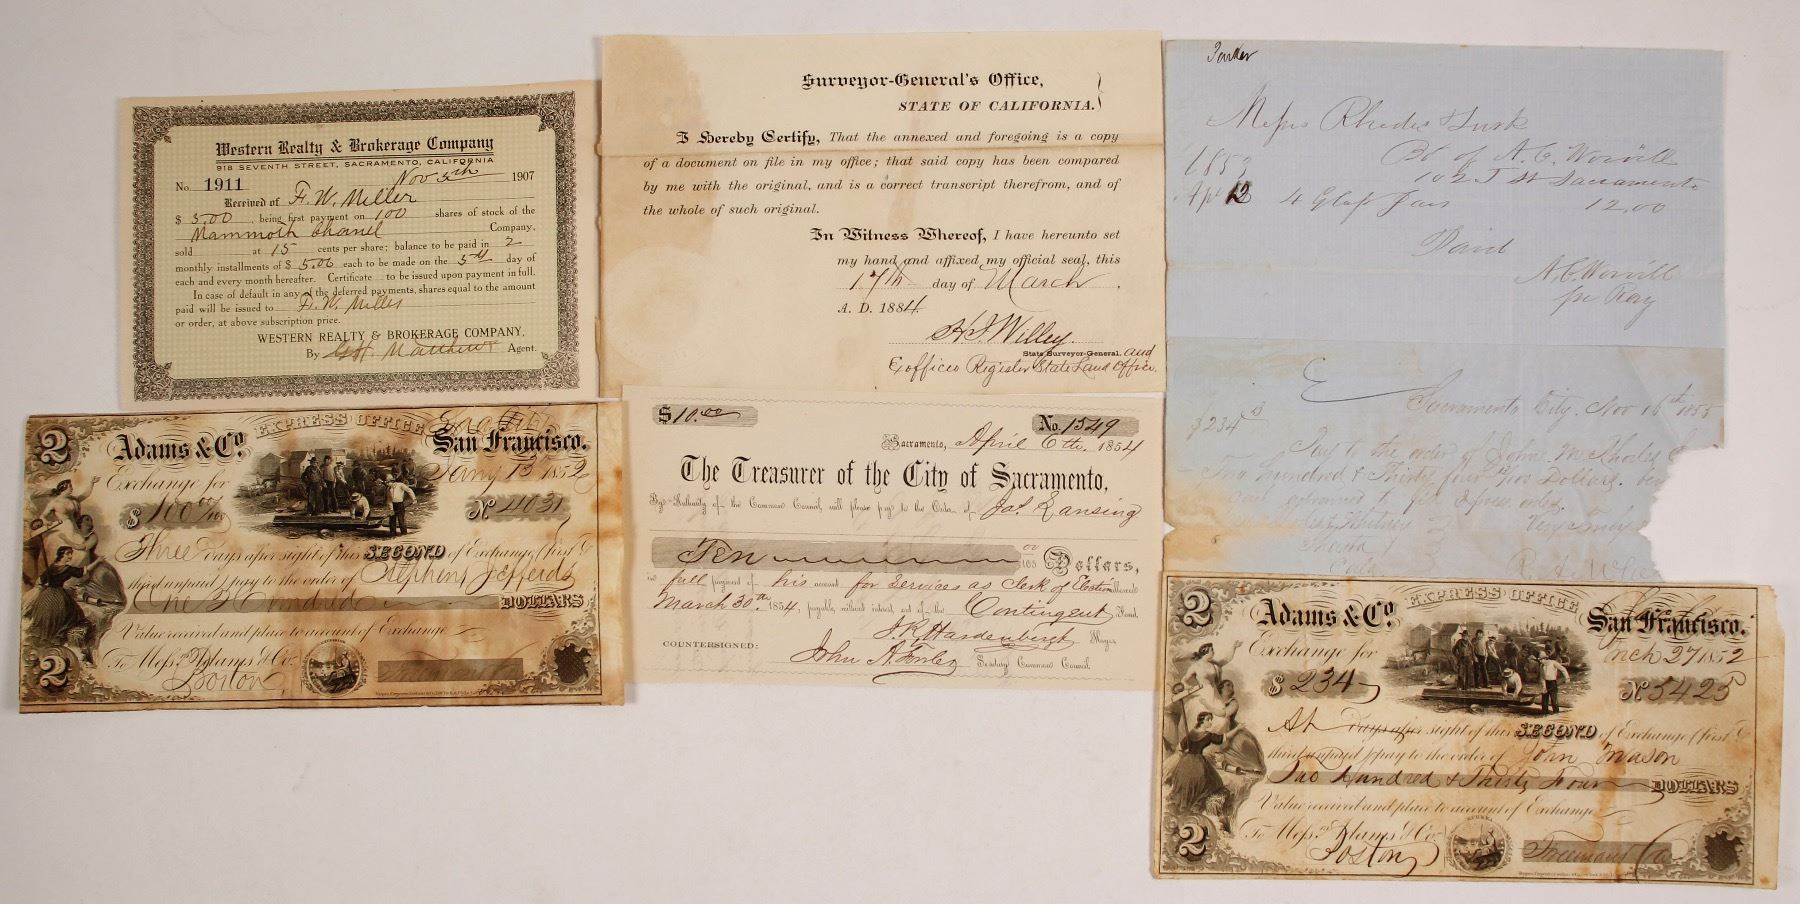 Western Realty & Brokerage Company
918 SEVENTH STREET, SACRAMENTO, CALIFORNIA
No. 1911 Nov 5th 1907
Received of F. W. Miller
$ 5.00, being first payment on 100 shares of stock of the
Mammoth Chanel Company,
sold at 15 cents per share; balance to be paid in 2
monthly installments of $ 5.00 each to be made on the 5th day of
each and every month hereafter. Certificate to be issued upon payment in full.
In case of default in any of the deferred payments, shares equal to the amount
paid will be issued to F. W. Miller
or order, at above subscription price.
WESTERN REALTY & BROKERAGE COMPANY.
By G H Matthews Agent.
Surveyor-General's Office,
STATE OF CALIFORNIA.
I Hereby Certify, That the annexed and foregoing is a copy
of a document on file in my office; that said copy has been compared
by me with the original, and is a correct transcript therefrom, and of
the whole of such original.
In Witness Whereof, I have hereunto set
my hand and affixed my official seal, this
17th day of March.
A. D. 1884.
H. I. Willey.
State Surveyor-General. and
Exofficio Register State Land Office.
Messrs Rhodes & Lusk
1853 Bt of A. C. Worvill
102 J St Sacramento
Apr 12 4 Glass Jars 12.00
Paid
A C Worvill
pr Ray
Sacramento City. Nov 16th 1855
$234
Pay to the order of John M. Rhodes
Two hundred & Thirty four Dollars.
2
EXPRESS OFFICE
Adams & Co San Francisco.
Jany 13 1852
Exchange for
$ 100 00/100 No 4031
Three days after sight of this SECOND of Exchange (first &
third unpaid) pay to the order of Stephen Jefferds
One Hundred DOLLARS
Value received and place to account of Exchange
To Messrs Adams & Co.
Boston
2
$10.00 No. 1549
Sacramento, April 6th. 1854
The Treasurer of the City of Sacramento,
By Authority of the Common Council, will please pay to the Order of Jas. Lansing
Ten 00/100 Dollars,
in full payment of his account for services as Clerk of Election allowed
March 30th 1854, payable without interest out of the Contingent Fund.
J. R. Hardenbergh Mayor.
COUNTERSIGNED:
John A. Fowler Sec'y Common Council
2
EXPRESS OFFICE
Adams & Co San Francisco.
Mch 27 1852
Exchange for
$ 234 No 5425
At days after sight of this SECOND of Exchange (first &
third unpaid) pay to the order of John Mason
Two Hundred & Thirty Four DOLLARS
Value received and place to account of Exchange
To Messrs Adams & Co
Boston
2